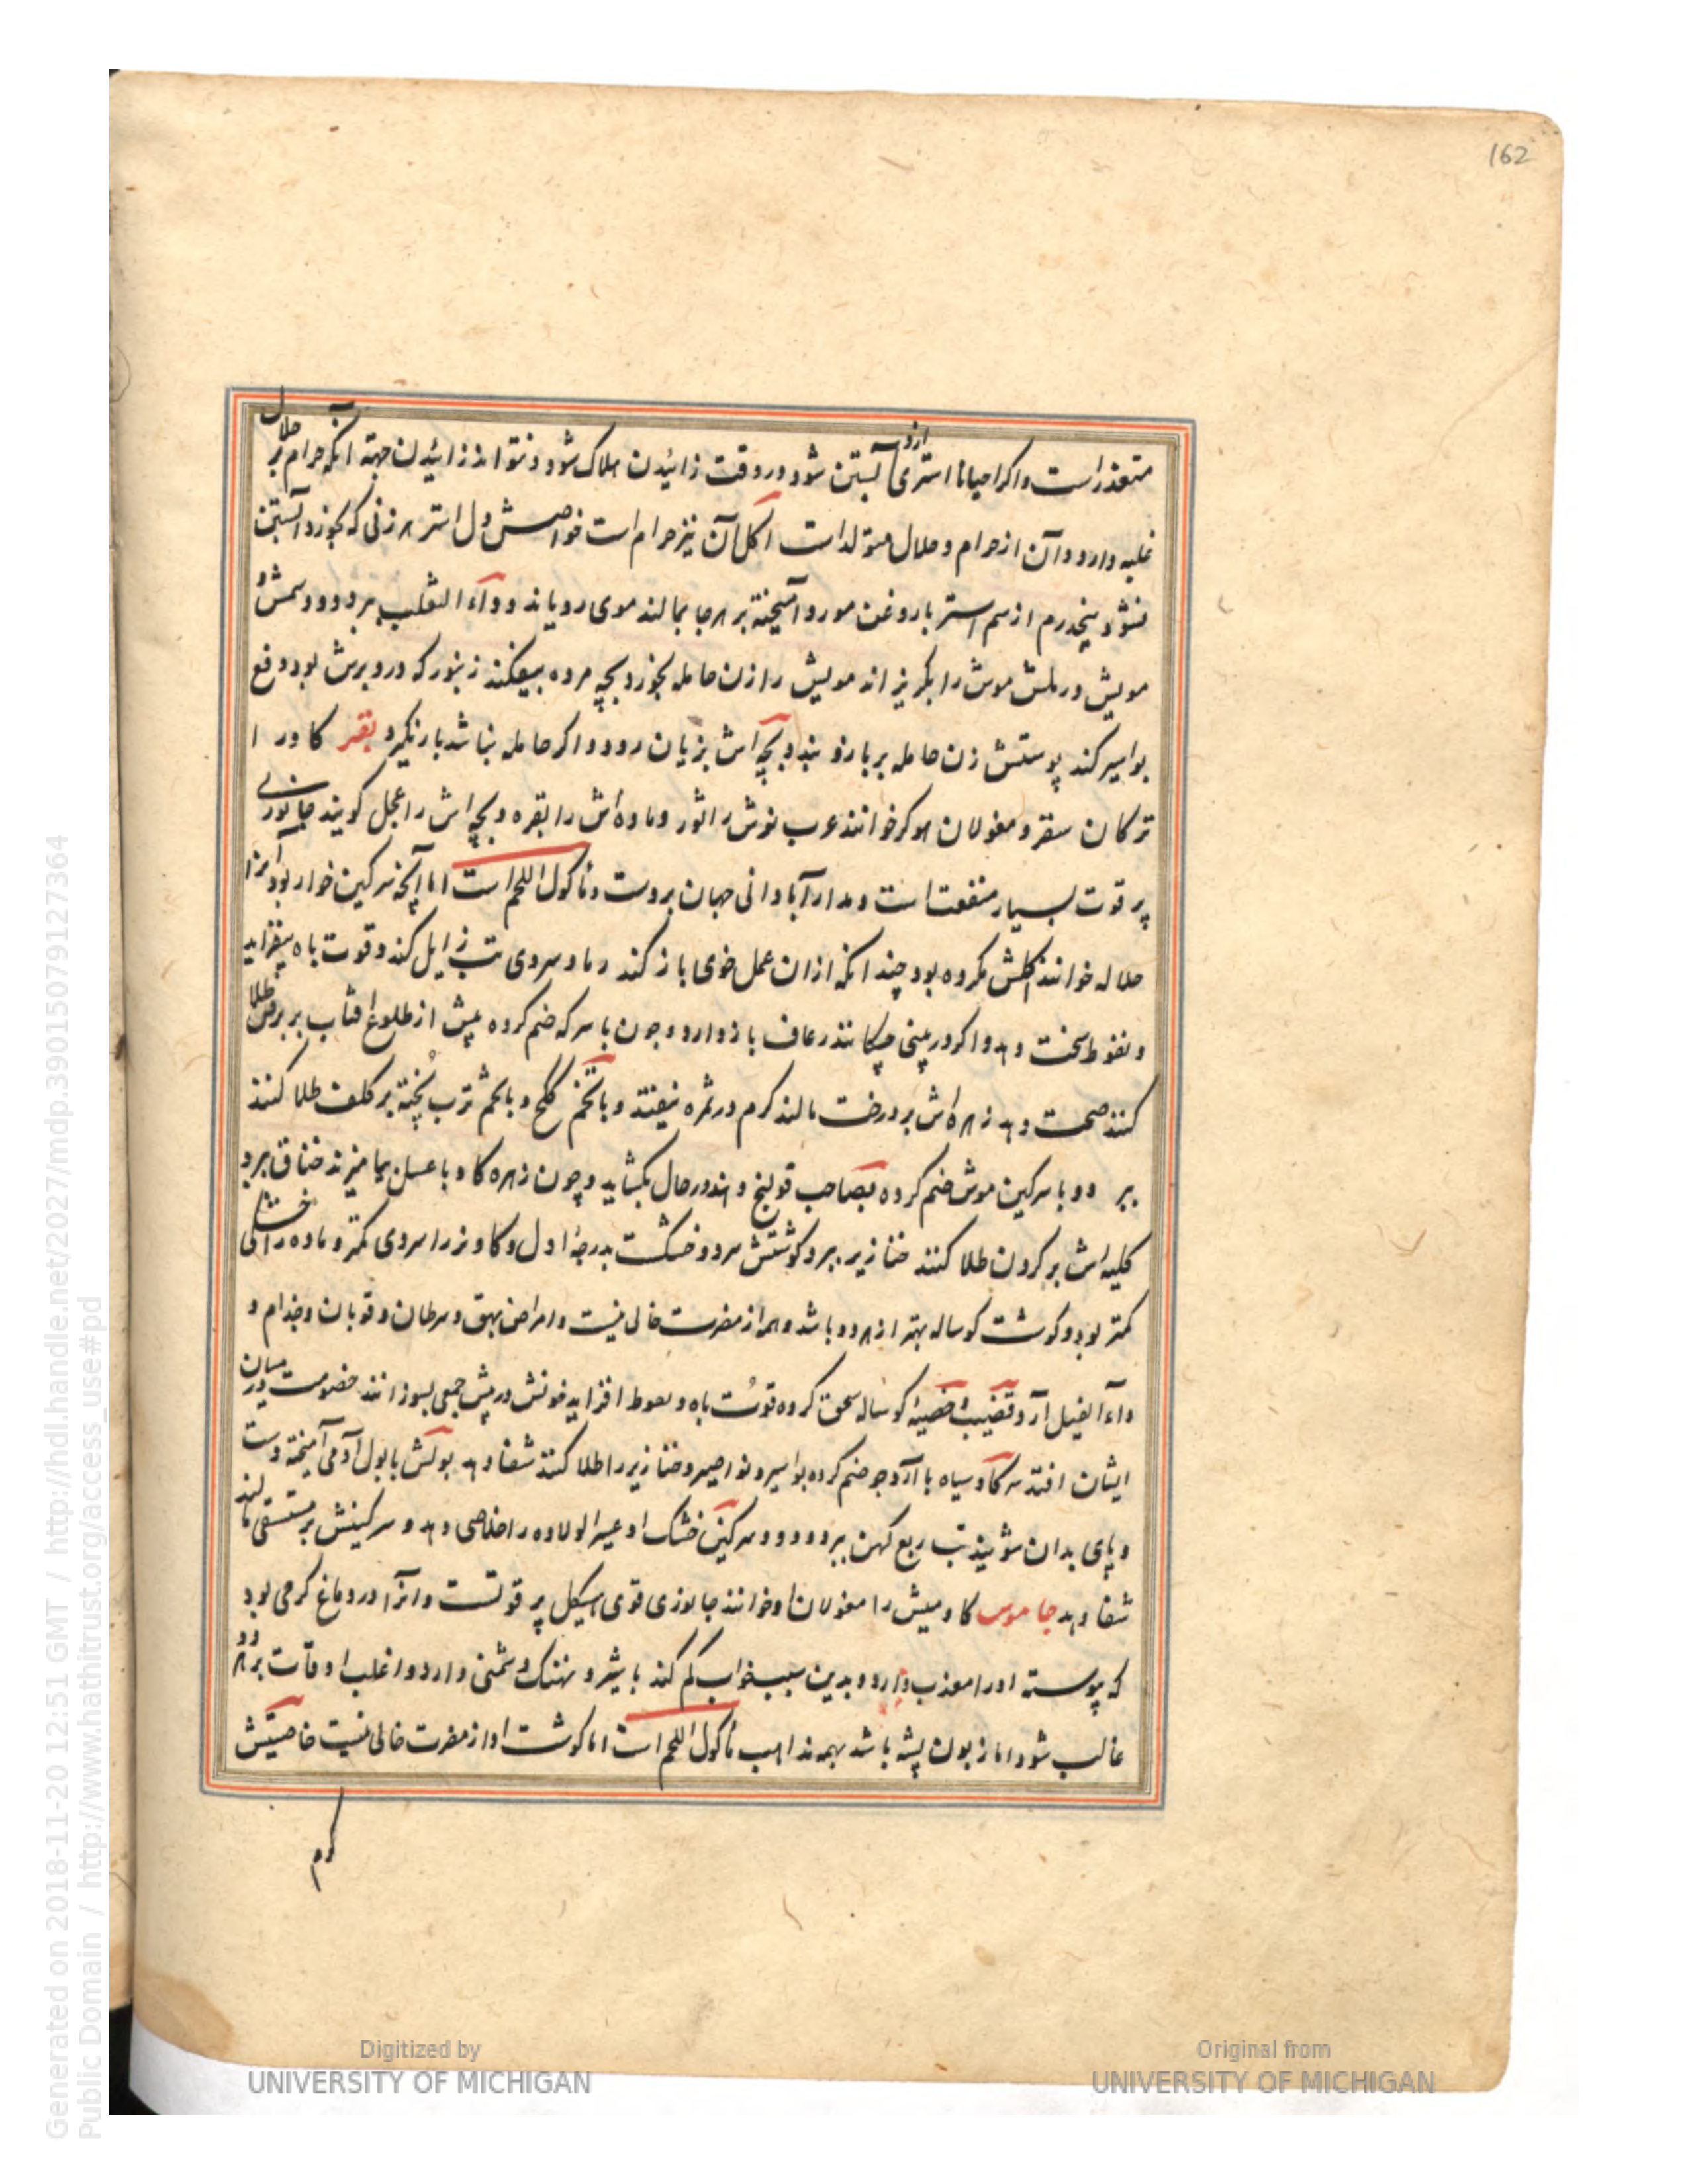 162
متعذر است و اکر احیانا استری ازو آبستن شود در وقت زائیدن هلاک شود و نتواند زائیدن جهة آنکه حرام بر حلال
غلبه دارد و آن از حرام و حلال متولد است اکل آن نیز حرام است خواصش دل استر هر زنی که بخورد آبستن
نشود پنجدرم از سم استر با روغن مورد آمیخته بر هر جا بمالند موی رویاند و داء الثعلب ببرد و
مویش در خانه موش را بکریزاند مویش را زن حامله بخورد بچه مرده بیفکند زنبور که در دبرش بود دفع
بواسیر کند پوستش زن حامله بر بازو بندد بچه اش بزیان رود و اکر حامله نباشد بار نکیرد بقر کاو را
ترکان سقر و مغولان هوکر خوانند عرب نرش را ثور و ماده اش را بقره و بچه اش را عجل کویند جانوری
پر قوت بسیار منفعت است و مدار آبادانی جهان بروست و مأکول اللحم است اما آنچه سرکین خوار بود آنرا
جلاله خوانند اکلش مکروه بود چندانکه از آن عمل خوی باز کند سردی تب زایل کند و قوت باه بیفزاید
و نعوظ سخت دهد و اکر در بینی چکانند رعاف باز دارد و چون با سرکه ضم کرده پیش از طلوع افتاب بر برص طلا
کنند صحت دهد زهره اش بر درخت مالند کرم در ثمره نیفتد و با تخم ترب پخته بر کلف طلا کنند
ببرد و با سرکین موش ضم کرده بصاحب قولنج دهند در حال بکشاید و چون زهره کاو با عسل بیامیزند خناق ببرد
کلیه اش بر کردن طلا کنند خنازیر ببرد کوشتش سرد و خشکست بدرجۀ اول و کاو نر را سردی کمتر و ماده را خشکی
کمتر بود و کوشت کوساله بهتر از هر دو باشد و هم از مضرت خالی نیست و امراض بهق و سرطان و قوبا و جذام و
داء الفیل آرد قضیب و خصیۀ کوساله سحق کرده قوت باه و نعوظ افزاید خونش در پیش جمعی بسوزانند خصومت در میان
ایشان افتد سرکاو سیاه با آرد جو ضم کرده بواسیر و نواصیر و خنازیر را طلا کنند شفا دهد بولش با بول آدمی آمیخته دست
و پای بدان شویند تب ربع کهن ببرد و دود سرکین خشک او عسر الولاده را خلاصی دهد و سرکینش بر مستسقی مالند
شفا دهد جاموس کاومیش را مغولان خوانند جانوری قوی هیکل پر قوتست و او را در دماغ کرمی بود
که پیوسته او را معذب دارد و بدین سبب خواب کم کند با شیر و نهنک دشمنی دارد و اغلب اوقات بر هر دو
غالب شود اما زبون پشه باشد بهمه مذاهب مأکول اللحم است اما کوشت او از مضرت خالی نیست خاصیتش
کرم
Generated on 2018-11-20 12:51 GMT / http://hdl.handle.net/2027/mdp.39015079127364
Public Domain / http://www.hathitrust.org/access_use#pd
Digitized by
UNIVERSITY OF MICHIGAN
Original from
UNIVERSITY OF MICHIGAN